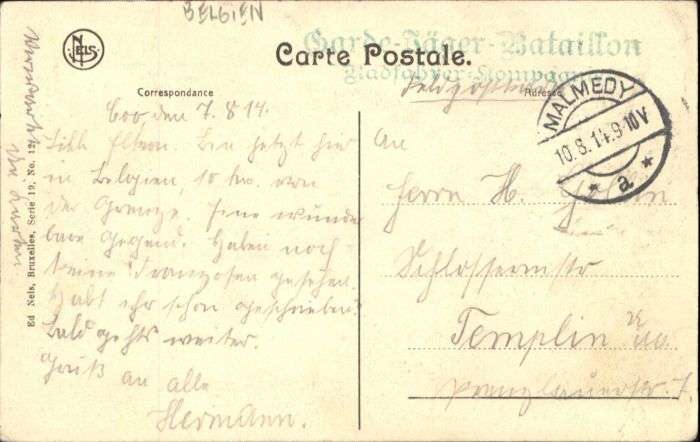 BELGIEN
NELS
Garde-Jäger-Bataillon
Radfahrer-Kompagnie
Carte Postale.
Correspondance
Adresse
Feldpost
MALMEDY
10.8.14.9-10V
* a *
Coo, den 7.8.14.
Liebe Eltern. Bin jetzt hier
in Belgien, 10 km. von
der Grenze. Eine wunder
bare Gegend. Haben noch
keine Franzosen gesehen.
Habt ihr schon geschrieben?
Bald gehts weiter.
Gruß an alle
Hermann.
An
Herrn H.
Schlossermstr
Templin
Prenzlauerstr.
Ed Nels, Bruxelles, Serie 19, No. 12